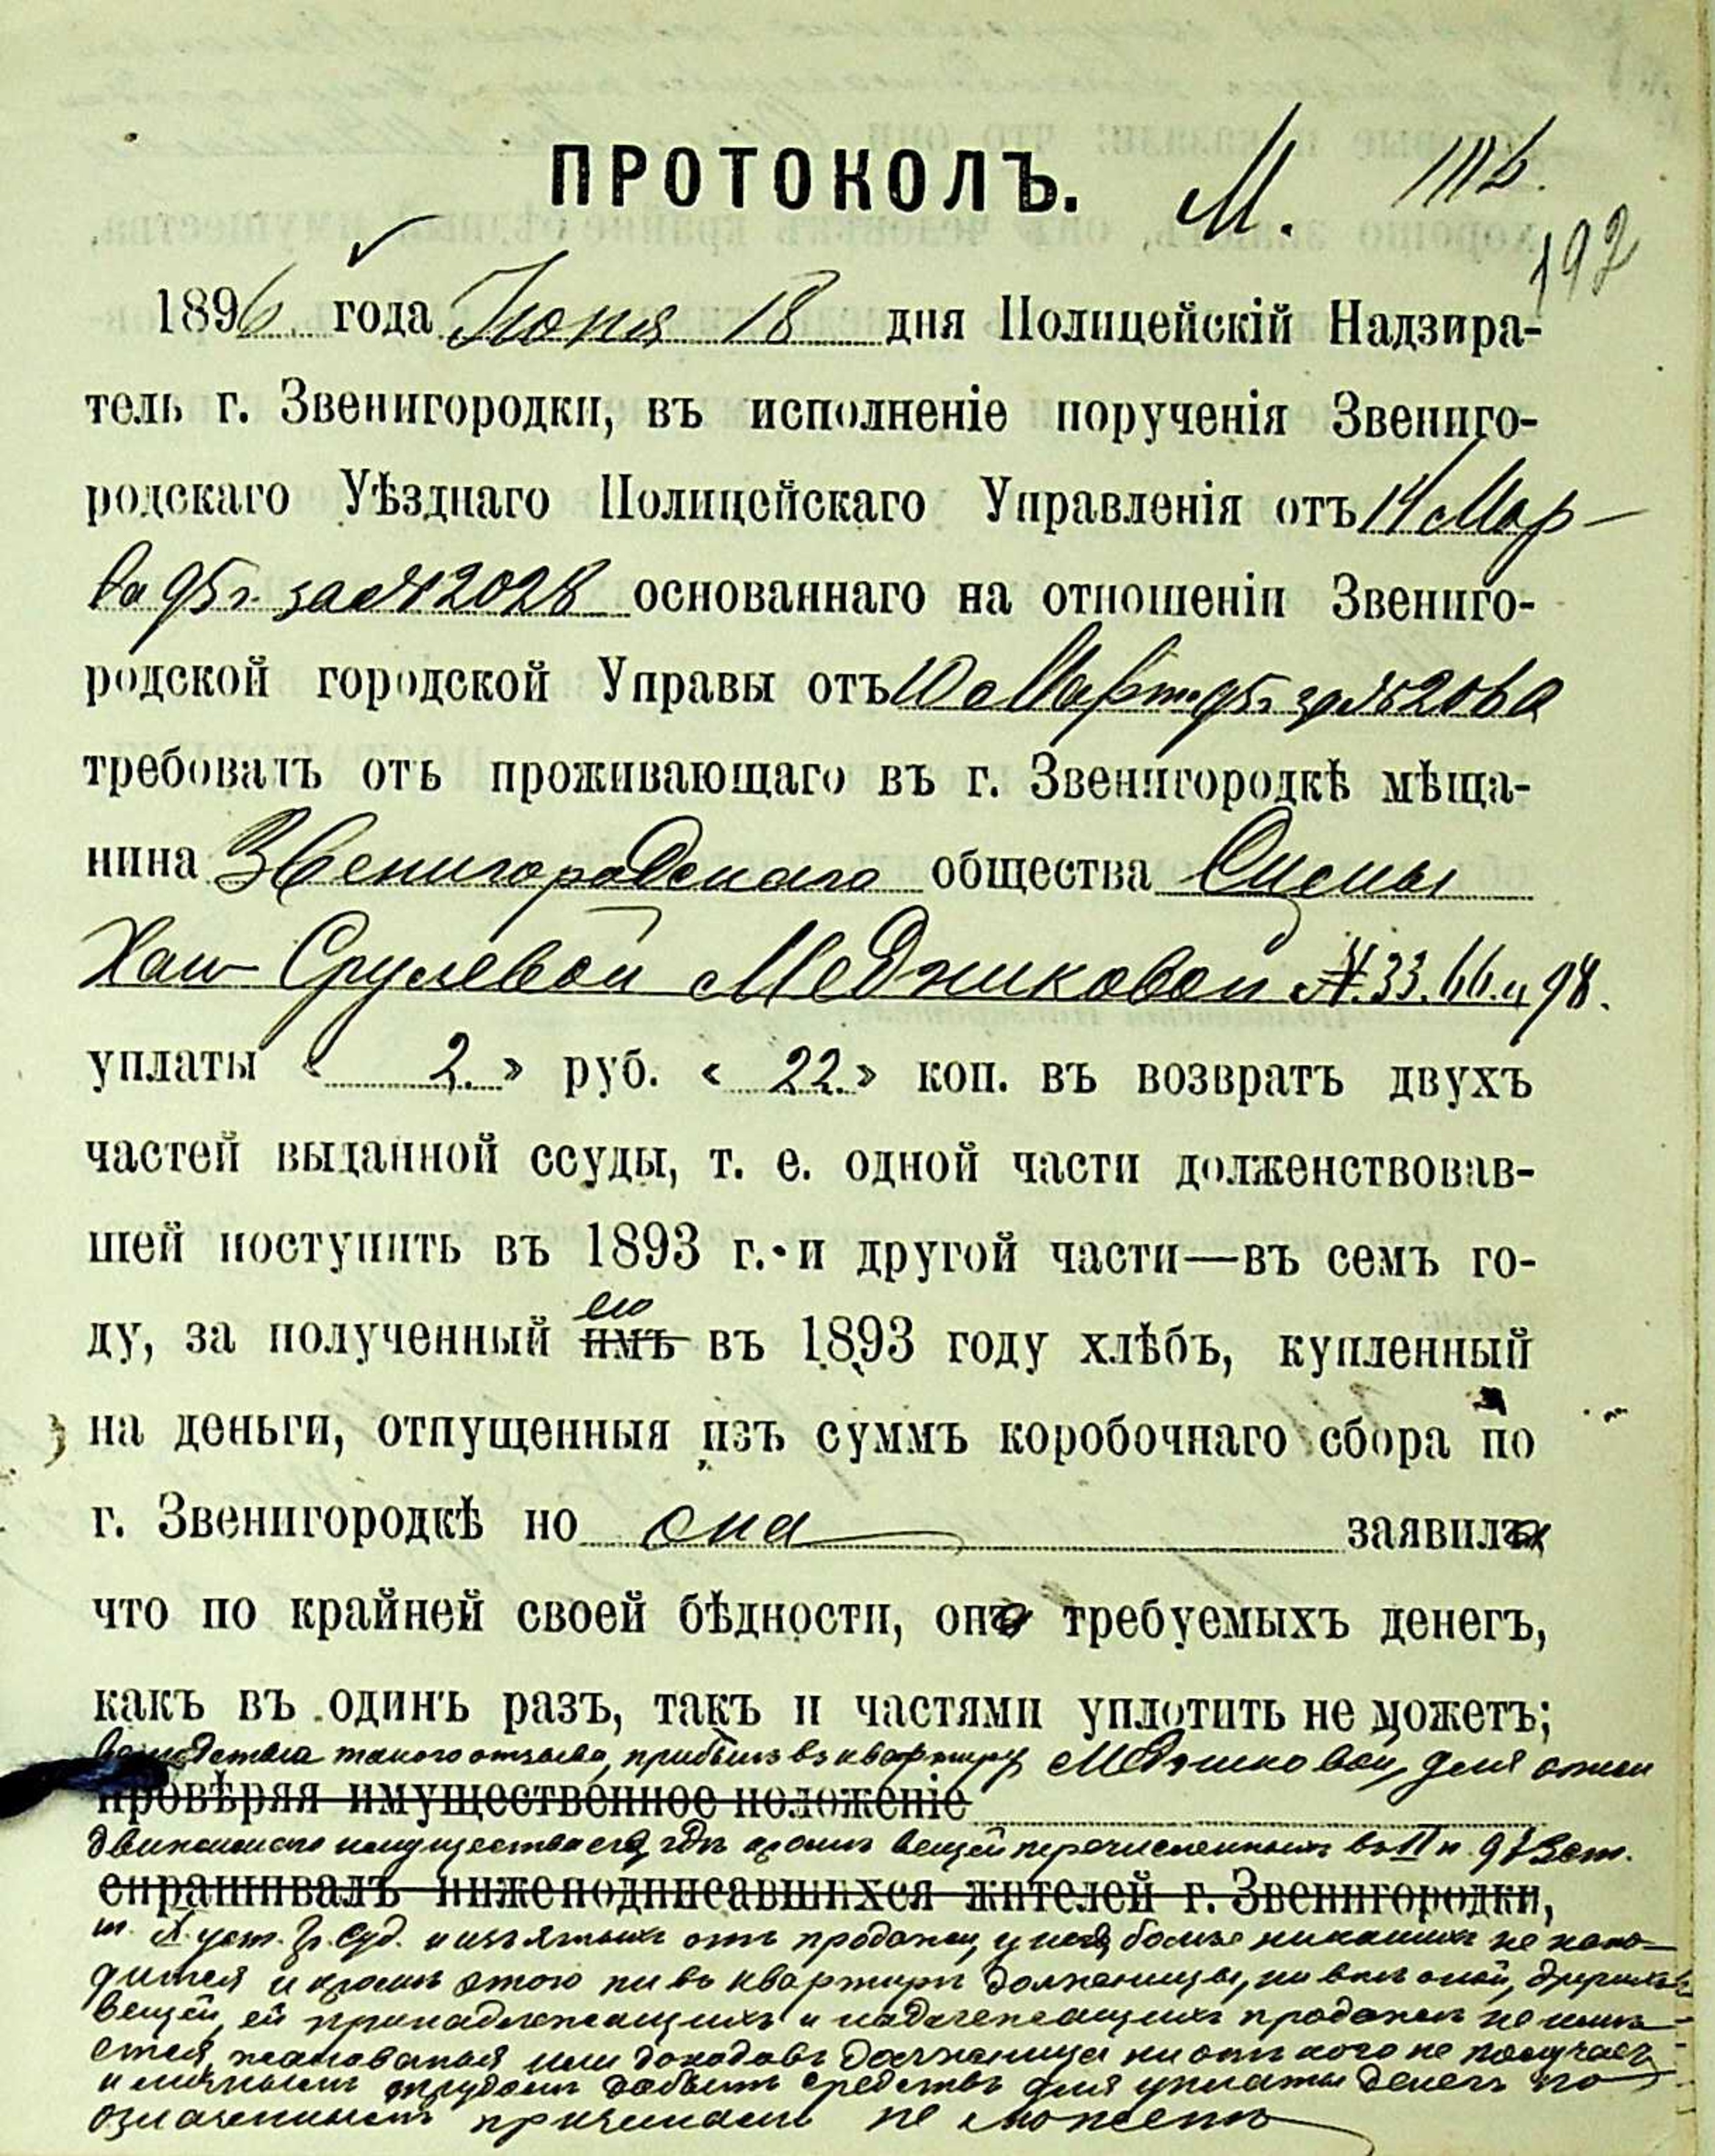 ПРОТОКОЛЪ. М.
192
1896 года Іюня 18 дня Полицейскій Надзира-
тель г. Звенигородки, въ исполненіе порученія Звениго-
родскаго Уѣзднаго Полицейскаго Управленія отъ 14 Мар-
та 95 г. за № 2028 основаннаго на отношеніи Звениго-
родской городской Управы отъ 10 Марта 95 г за №
требовалъ отъ проживающаго въ г. Звенигородкѣ мѣща-
нина Звенигородскаго общества
Хаи Срулевой Медниковой № 33. 66. и 98.
уплаты « 2. » руб. « 22. » коп. въ возвратъ двухъ
частей выданной ссуды, т. е. одной части долженствовав-
шей поступить въ 1893 г. и другой части—въ семъ го-
ею
ду, за полученный имъ въ 1893 году хлѣбъ, купленный
на деньги, отпущенныя изъ суммъ коробочнаго сбора по
г. Звенигородкѣ но она заявила
что по крайней своей бѣдности, она требуемыхъ денегъ,
какъ въ одинъ разъ, такъ и частями уплотить не можетъ;
вслѣдствіе такого отзыва, прибылъ въ квартиру Медниковой, для описи
провѣряя имущественное положеніе
движимаго имущества ея, гдѣ кромѣ вещей перечисленныхъ въ II п. 973 ст.
спрашивалъ нижеподписавшихся жителей г. Звенигородки,
т. X уст. Гр. Суд. и изъятыхъ отъ продажи, у ней болѣе никакихъ не нахо-
дится и кромѣ этого ни въ квартирѣ должницы, ни внѣ оной, другихъ
вещей, ей принадлежащихъ и надлежащихъ продажѣ не имѣ-
ется, жалованья или доходовъ должница ни отъ кого не получаетъ
и личнымъ трудомъ добыть средствъ для уплаты денегъ по
означеннымъ причинамъ не можетъ